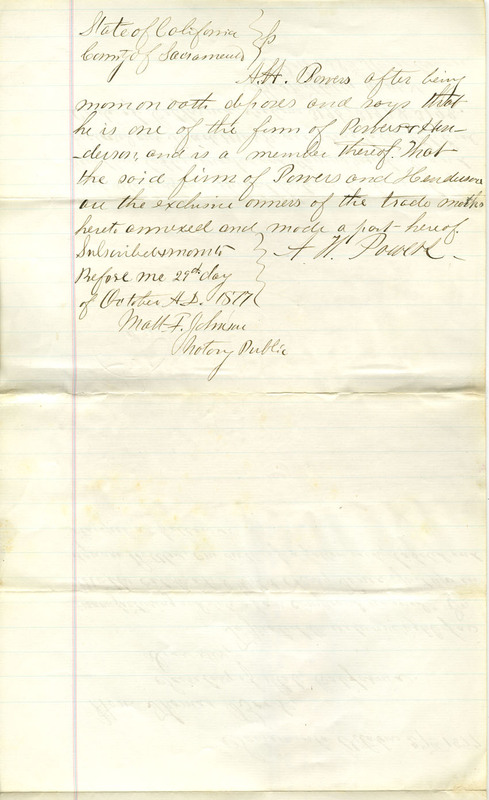 State of California } ss
County of Sacramento }
A. H. Powers after being
sworn on oath deposes and says that
he is one of the firm of Powers & Hen-
-derson, and is a member thereof. That
the said firm of Powers and Henderson
are the exclusive owners of the trade marks
hereto annexed and made a part hereof.
Subscribed & sworn to } A. H. Powers
Before me 29th day
of October A.D. 1877
Matt F. Johnson
Notory Public